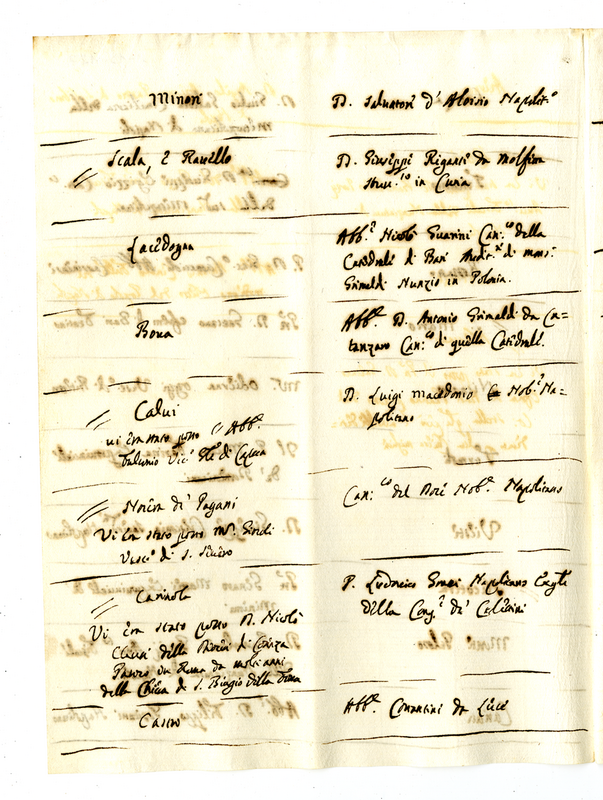 Minori
D. Salvatore d' Aloisio Napolit.o
Scala, e Ravello
D. Giuseppe Riganti da Molfetta
in Curia
Lacedogna
Abb.e Nicolò Guarini Can.co della
Catedrale di Bari di mons.
Grimaldi Nunzio in Polonia.
Bova
Abb.e D. Antonio Grimaldi da Ca=
tanzaro Can.co di quella Catedrale.
Calvi
vi era stato posto l' Abb.e
Vic.o Gle di Capua
D. Luigi Macedonio Nob.e Na=
politano
Nocera de' Pagani
Vi era stato posto Mr.
Vesc.o di S. Severo
Can.co del Nob.e Napolitano
Carinola
Vi era stato posto D. Nicolò
della di Conza
in Roma da molti anni
della Chiesa di S. Biagio della
P. Lodovico Napolitano
della Cong.e de' Celestini
Castro
Abb.e da Lecce